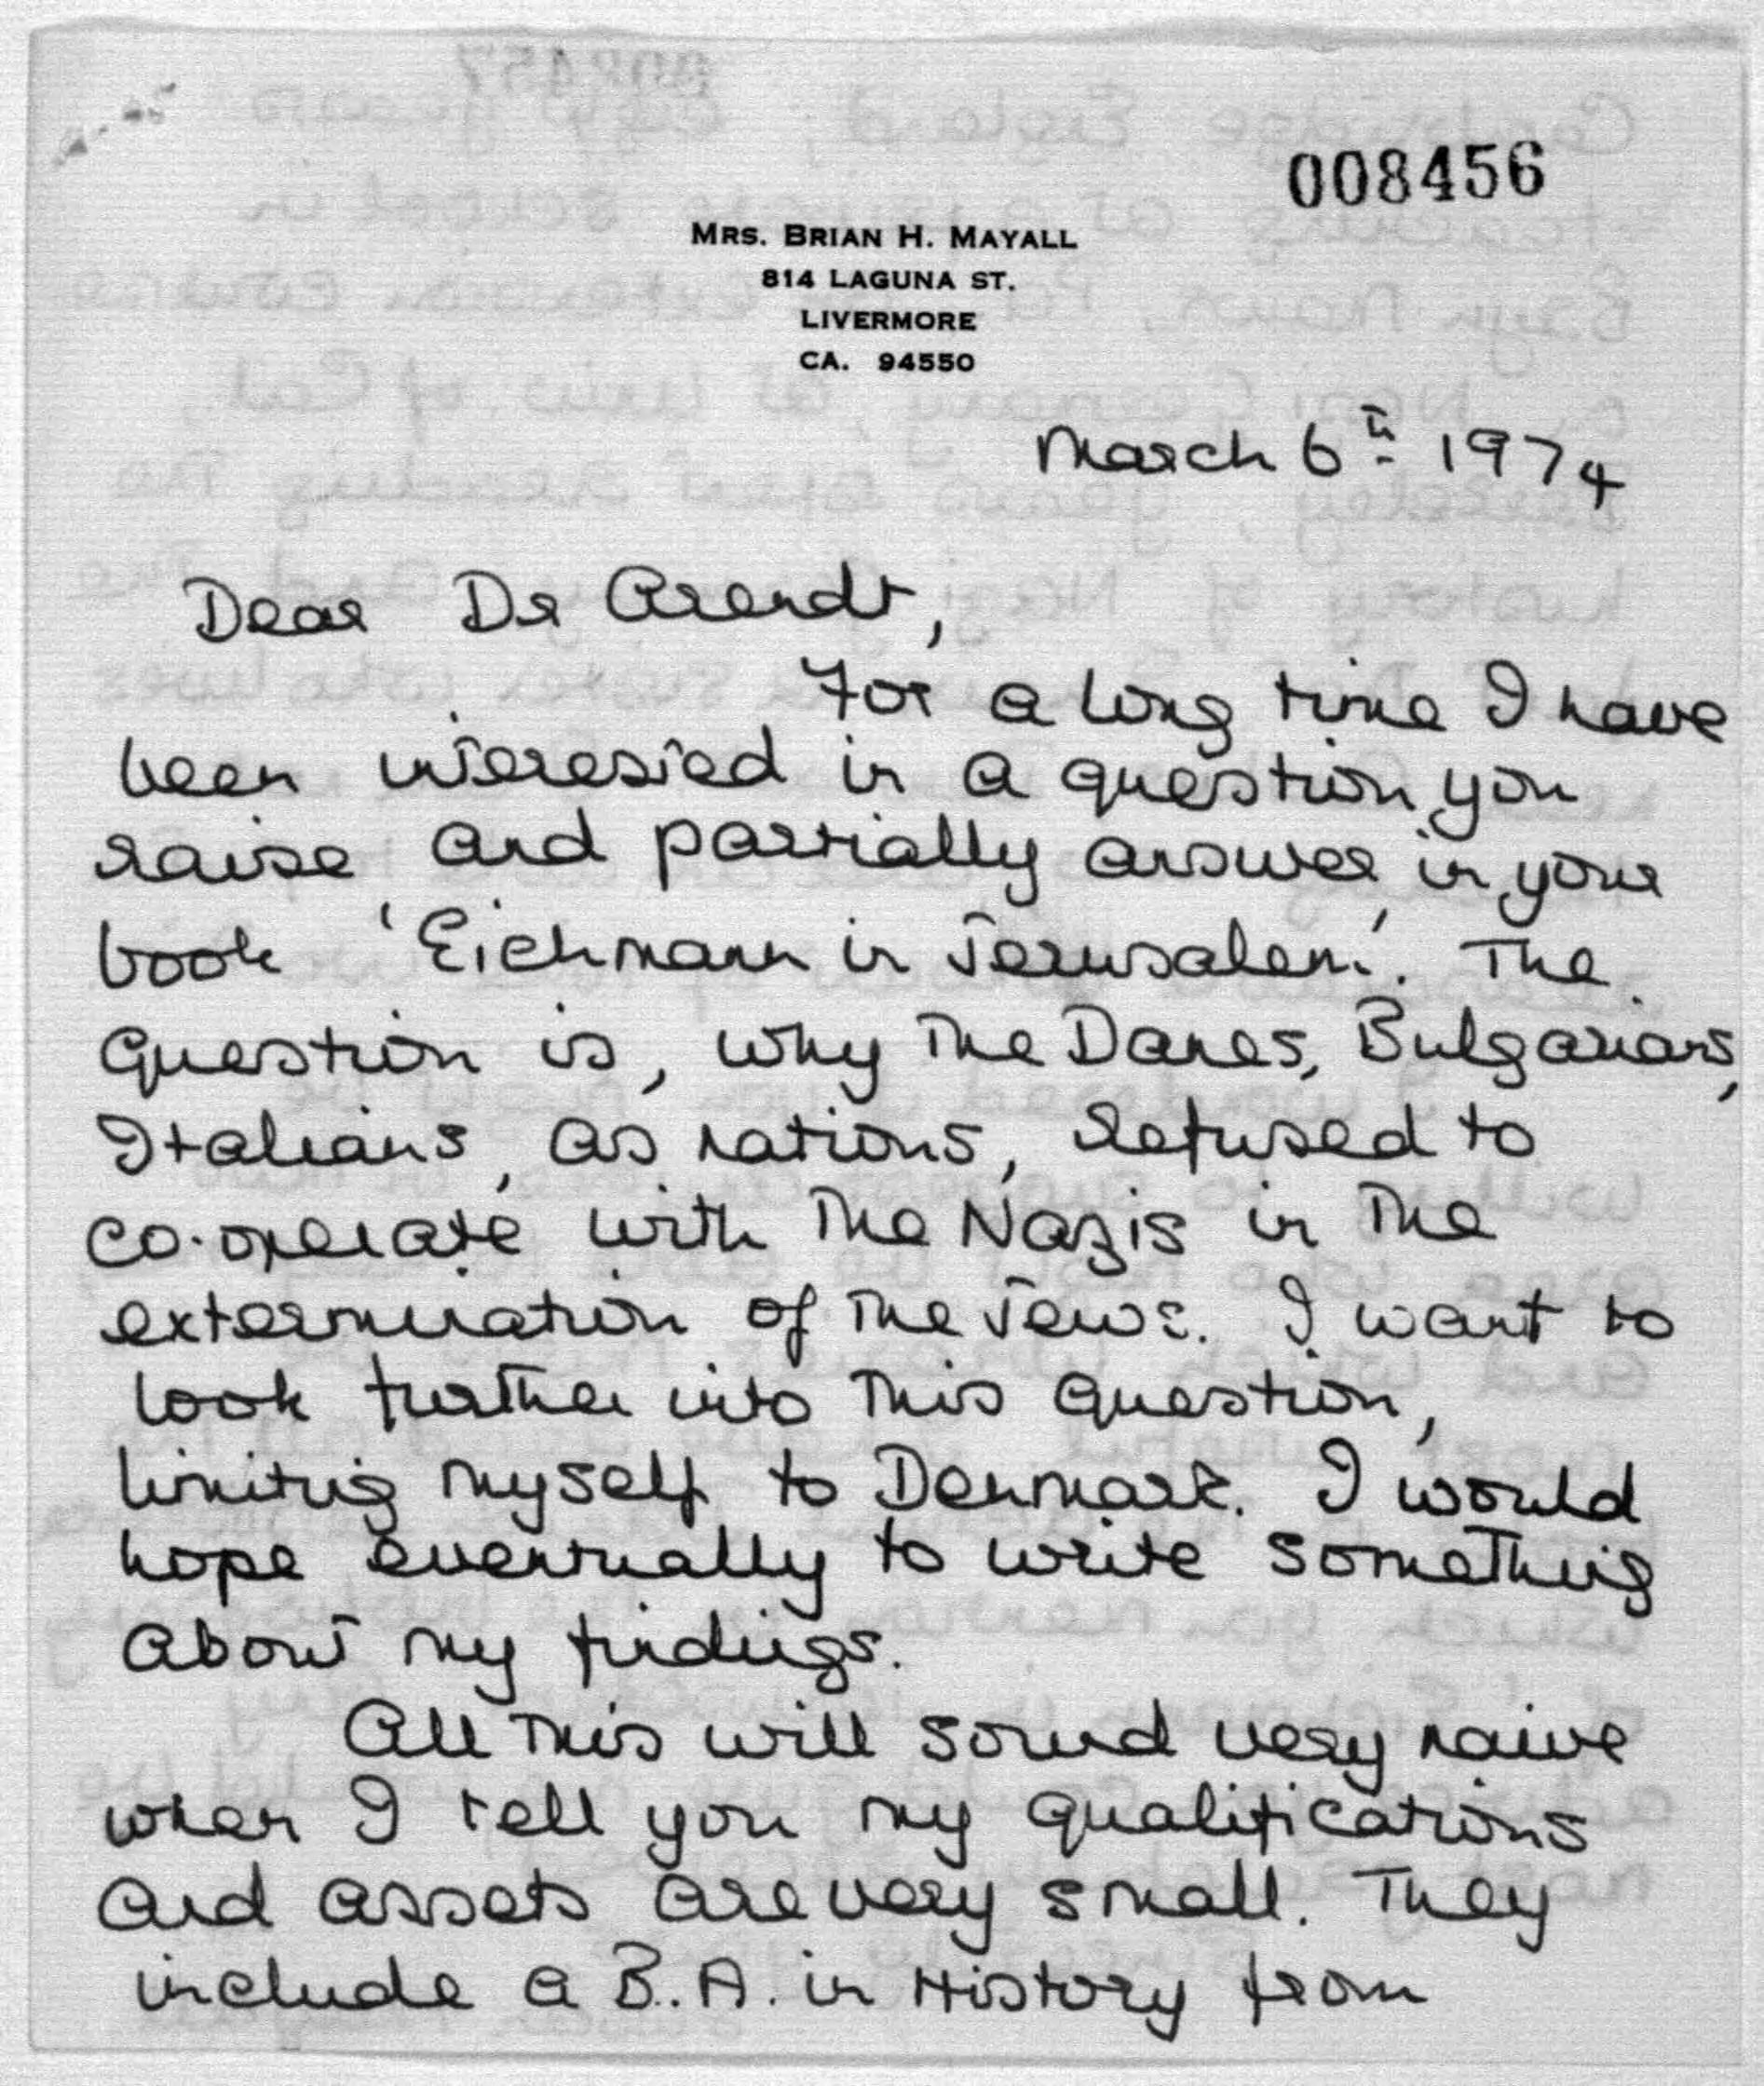 008456
MRS. BRIAN H. MAYALL
814 LAGUNA ST.
LIVERMORE
CA. 94550
March 6th 1974
Dear Dr Arendt,
For a long time I have
been interested in a question you
raise and partially answer in your
book 'Eichmann in Jerusalem'. The
question is, why the Danes, Bulgarians,
Italians, as nations, refused to
co-operate with the Nazis in the
extermination of the Jews. I want to
look further into this question,
limiting myself to Denmark. I would
hope eventually to write something
about my findings.
All this will sound very naive
when I tell you my qualifications
and assets are very small. They
include a B.A. in History from